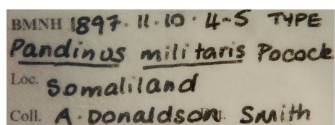 BMNH 1897.11.10.4-5 TYPE
Pandinus militaris Pocock
Loc. Somaliland
Coll. A. Donaldson Smith